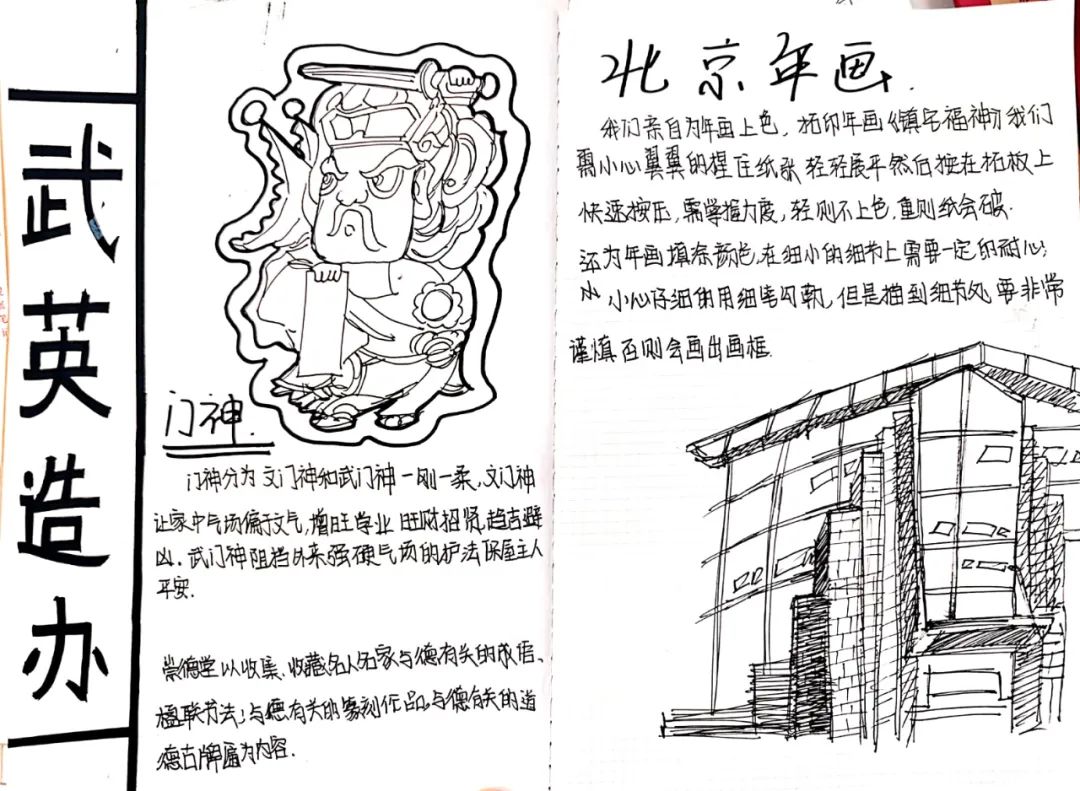 武英造办
门神
门神分为文门神和武门神一刚一柔，文门神
让家中气场偏于文气，增旺学业 旺财招贤，趋吉避
凶．武门神阻挡外来强硬气场的护法保屋主人
平安．
崇德堂以收集、收藏名人名家与德有关的成语、
楹联书法；与德有关的篆刻作品，与德有关的道
德古牌匾为内容．
北京年画．
我们亲自为年画上色，拓印年画《镇宅福神》我们
需小心翼翼的捏住纸张 轻轻展平 然后按在拓板上
快速按压，需掌握力度，轻则不上色，重则纸会破．
还为年画填涂颜色，在细小的细节上需要一定的耐心；
小心仔细的用细笔勾勒，但是描到细节处 要非常
谨慎 否则会画出画框．